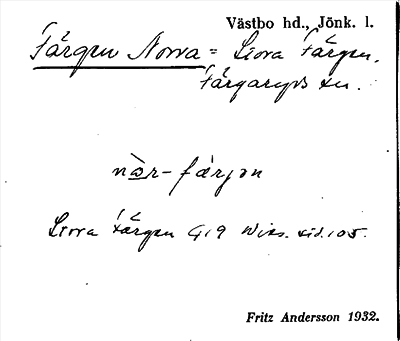 Västbo hd., Jönk. l.
Färgen Norra = Stora Färgen,
Färgaryds sn.
nòr-färjən
Stora Färgen G 19 Wies. sid. 105.
Fritz Andersson 1932.